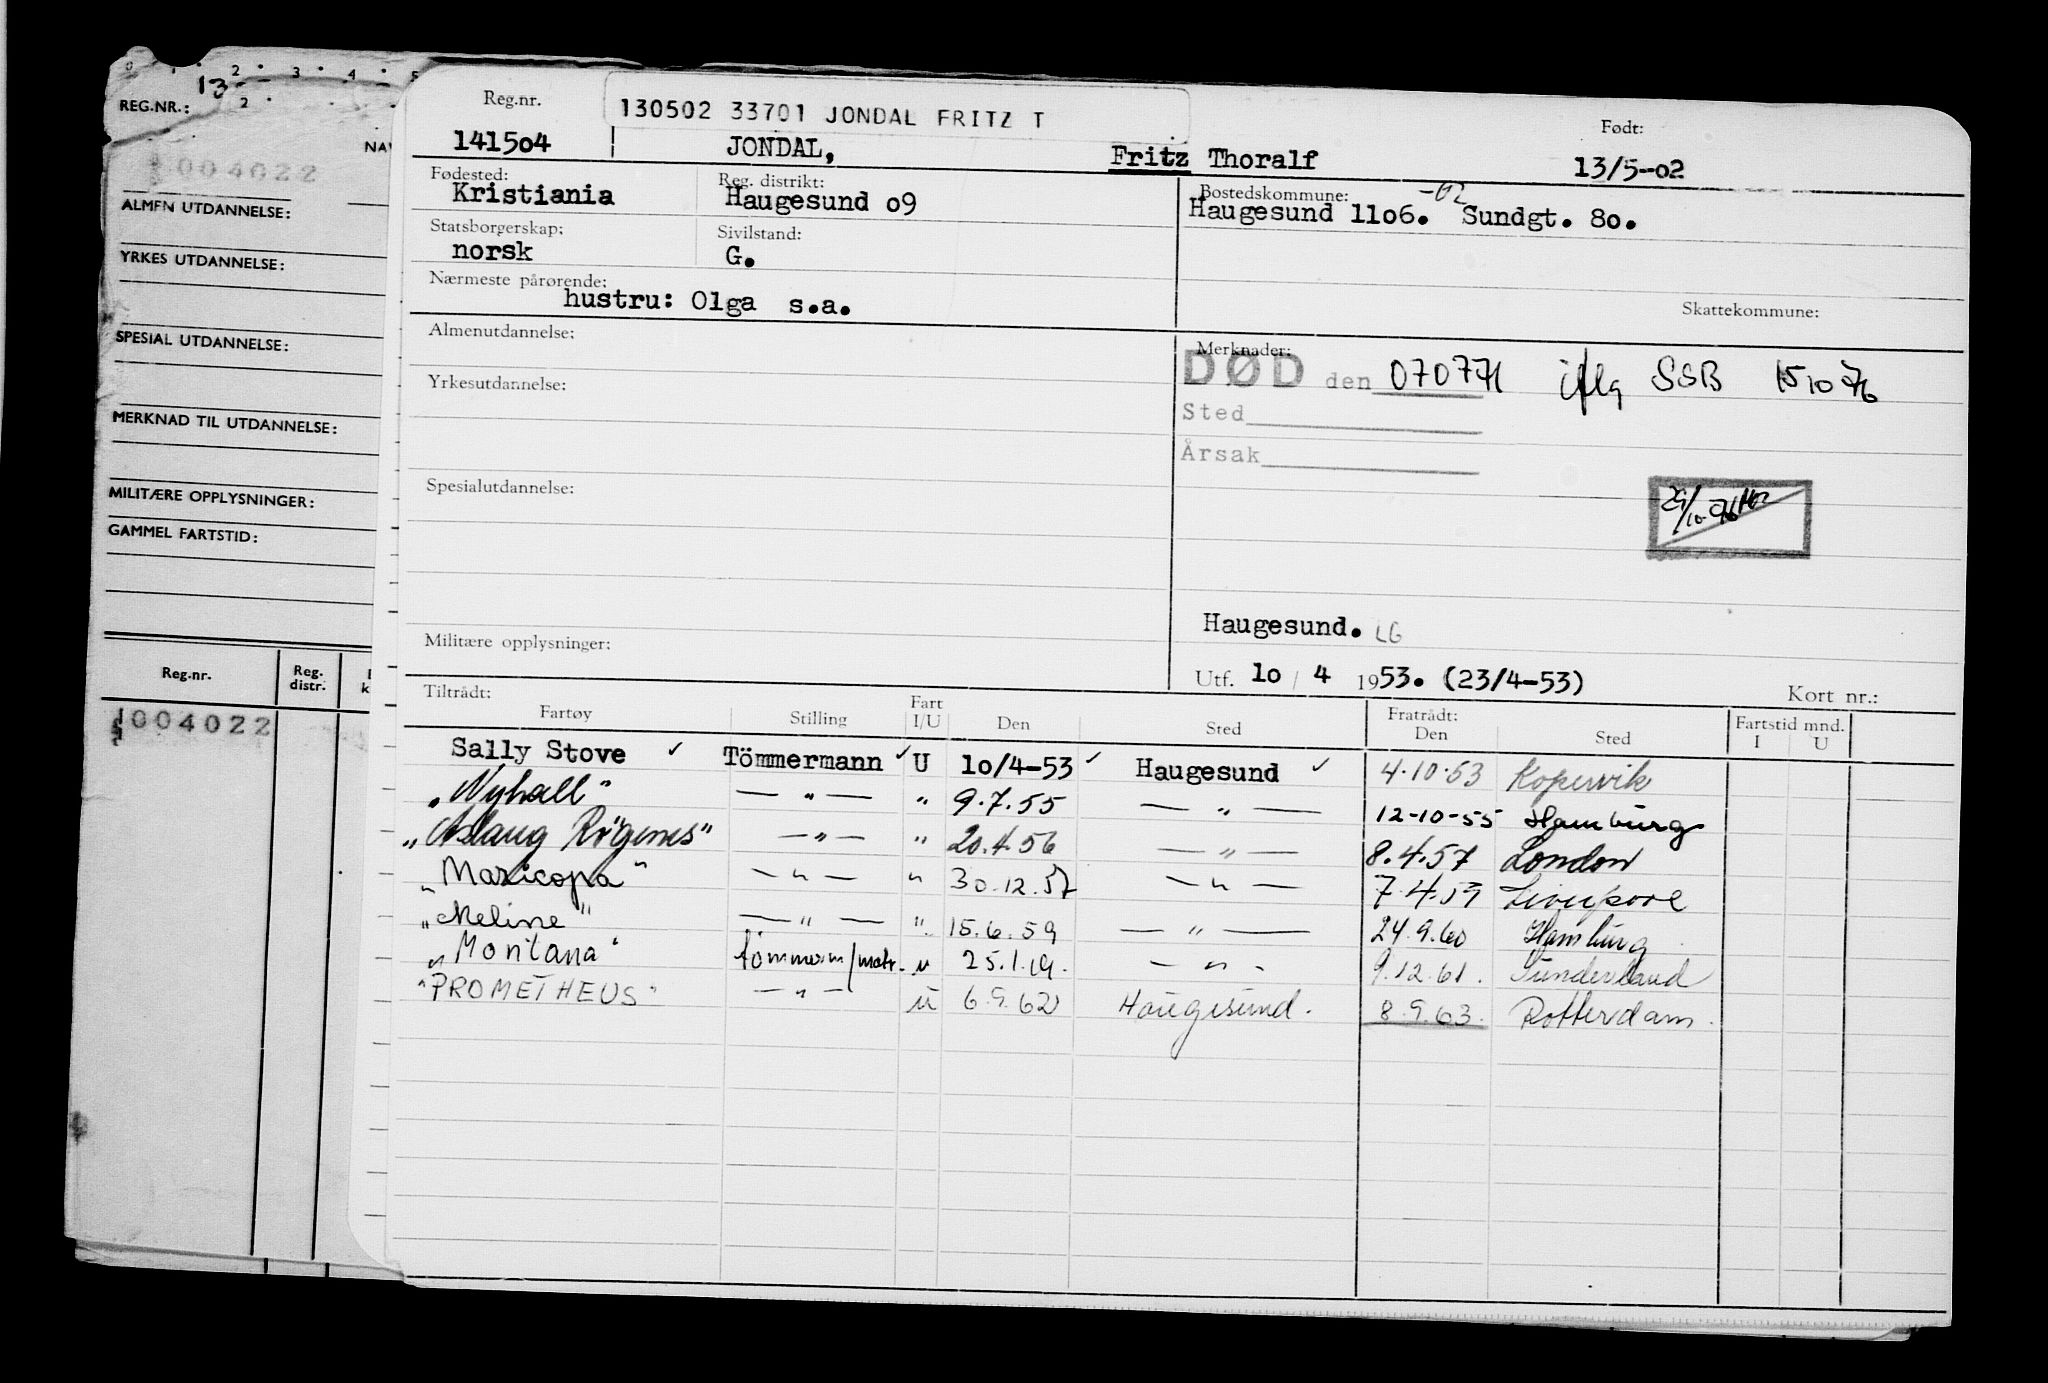 0 1 2 3 4 5
13
2
REG.NR.:
NAV
004022
ALMEN UTDANNELSE:
YRKES UTDANNELSE:
SPESIAL UTDANNELSE:
MERKNAD TIL UTDANNELSE:
MILITÆRE OPPLYSNINGER:
GAMMEL FARTSTID:
Reg.nr. Reg. distr.
004022
130502 33701 JONDAL FRITZ T
Reg.nr. Født:
141504 JONDAL, Fritz Thoralf 13/5-02
Fødested: Reg. distrikt: Bostedskommune: -02
Kristiania Haugesund 09 Haugesund 1106. Sundgt. 80.
Statsborgerskap: Sivilstand:
norsk G.
Nærmeste pårørende:
hustru: Olga s.a.
Skattekommune:
Almenutdannelse: Merknader:
DØD den 070771 iflg SSB 151076
Yrkesutdannelse:
Sted
Årsak
Spesialutdannelse:
Haugesund. LG
Militære opplysninger:
Utf. 10 / 4 1953. (23/4-53) Kort nr.:
Tiltrådt: Fratrådt: Fartstid mnd.
Fartøy Stilling Fart I/U Den Sted Den Sted I U
Sally Stove ✓ Tömmermann ✓ U 10/4-53 ✓ Haugesund ✓ 4.10.53 Kopervik
"Nyhall" — " — " 9.7.55 — " — 12-10-55 Hamburg
"Aslaug Røgenes" — " — " 20.4.56 — " — 8.4.57 London
"Maricopa" — " — " 30.12.57 — " — 7.4.59 Liverpool
"Meline" — " — " 15.6.59 — " — 24.9.60 Hamburg
"Montana" tömmerm/matr. u 25.1.19. — " - 9.12.61. Sunderland
"PROMETHEUS" — " — u 6.9.62 Haugesund. 8.9.63. Rotterdam.